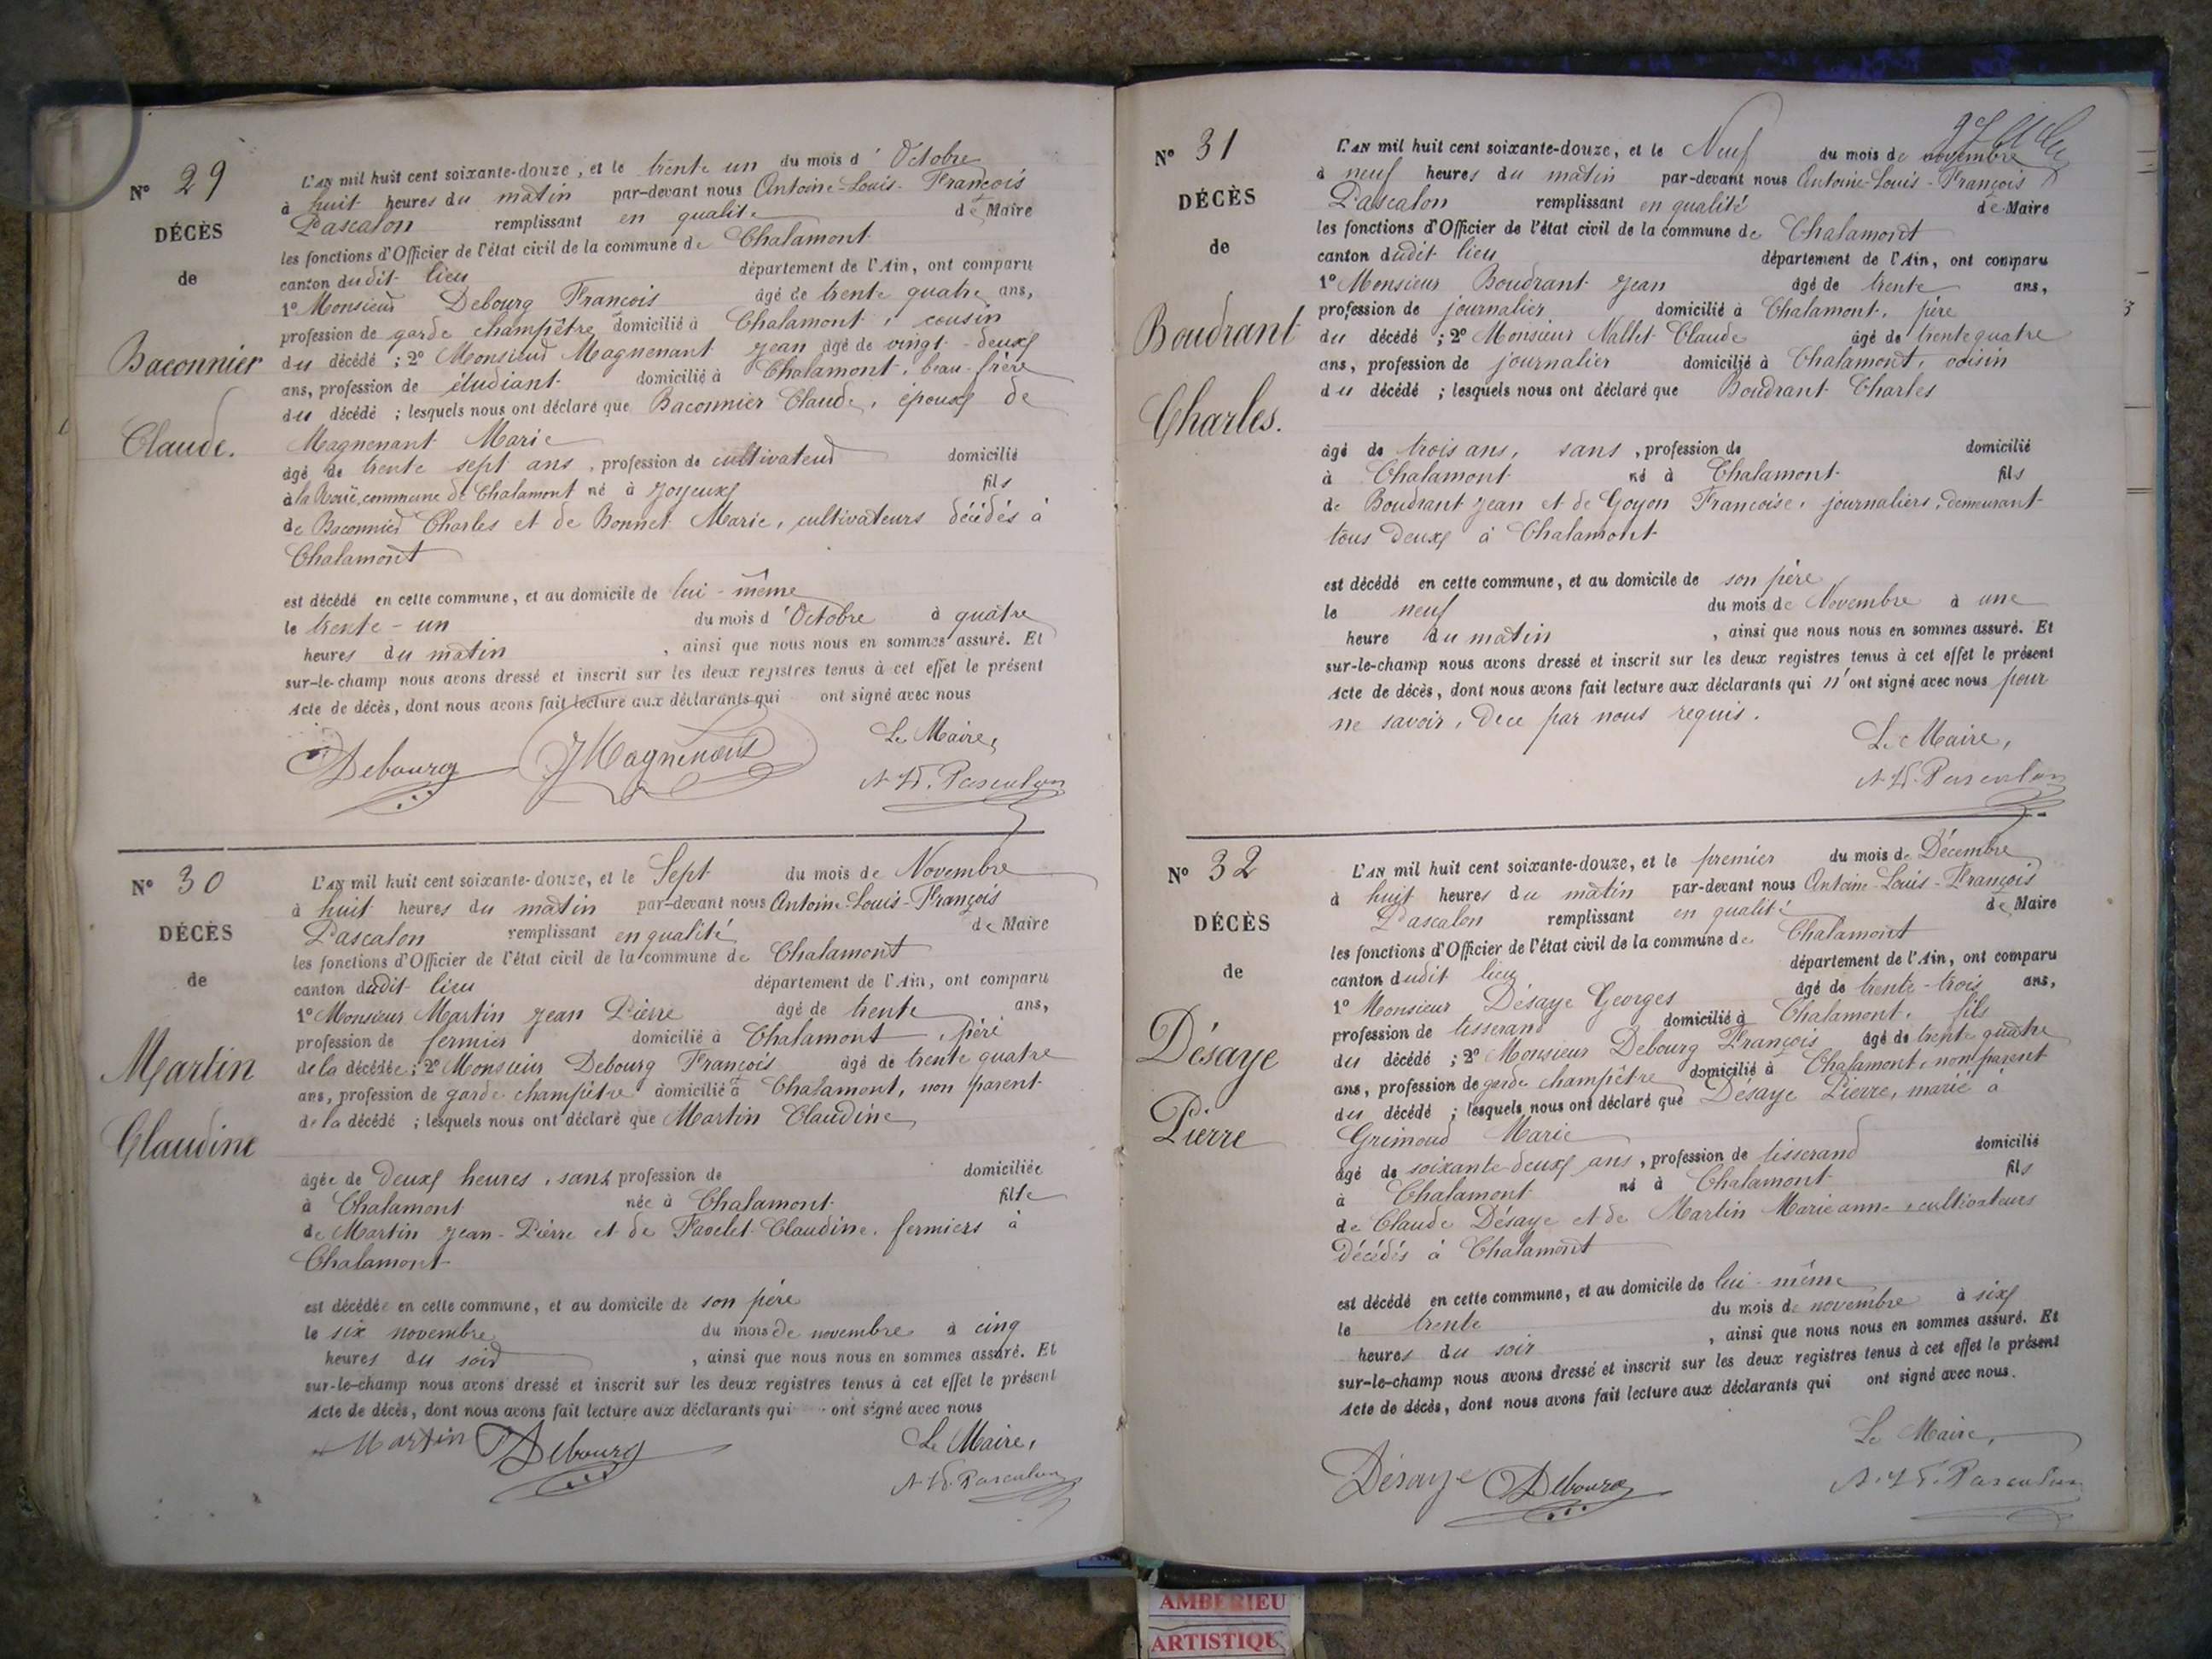 Nº 29
DÉCÈS
de
Baconnier
Claude.
L'AN mil huit cent soixante-douze, et le trente un du mois d'Octobre
à huit heures du matin par-devant nous Antoine-Louis-François
Pascalon remplissant en qualité de Maire
les fonctions d'Officier de l'état civil de la commune de Chalamont
canton dudit lieu département de l'Ain, ont comparu
1º Monsieur Debourg François âgé de trente quatre ans,
profession de garde champêtre domicilié à Chalamont, cousin
du décédé ; 2º Monsieur Magnenant Jean âgé de vingt-deux
ans, profession de étudiant domicilié à Chalamont, beau-frère
du décédé ; lesquels nous ont déclaré que Baconnier Claude, époux de
Magnenant Marie
âgé de trente sept ans, profession de cultivateur domicilié
à la Roue, commune de Chalamont né à Joyeux fils
de Baconnier Charles et de Bonnet Marie, cultivateurs décédés à
Chalamont
est décédé en cette commune, et au domicile de lui-même
le trente-un du mois d'Octobre à quatre
heures du matin , ainsi que nous nous en sommes assuré. Et
sur-le-champ nous avons dressé et inscrit sur les deux registres tenus à cet effet le présent
Acte de décès, dont nous avons fait lecture aux déclarants qui ont signé avec nous
Le Maire,
Debourg JMagnenant
Pascalon
Nº 30
DÉCÈS
de
Martin
Claudine
L'AN mil huit cent soixante-douze, et le Sept du mois de Novembre
à huit heures du matin par-devant nous Antoine-Louis-François
Pascalon remplissant en qualité de Maire
les fonctions d'Officier de l'état civil de la commune de Chalamont
canton dudit lieu département de l'Ain, ont comparu
1º Monsieur Martin Jean Pierre âgé de trente ans,
profession de fermier domicilié à Chalamont, père
de la décédée ; 2º Monsieur Debourg François âgé de trente quatre
ans, profession de garde champêtre domicilié à Chalamont, non parent
de la décédé ; lesquels nous ont déclaré que Martin Claudine
âgée de deux heures, sans profession de domiciliée
à Chalamont née à Chalamont fille
de Martin Jean-Pierre et de Favelet Claudine, fermiers à
Chalamont
est décédée en cette commune, et au domicile de son père
le six novembre du mois de novembre à cinq
heures du soir , ainsi que nous nous en sommes assuré. Et
sur-le-champ nous avons dressé et inscrit sur les deux registres tenus à cet effet le présent
Acte de décès, dont nous avons fait lecture aux déclarants qui ont signé avec nous
Martin Debourg Le Maire,
Pascalon
Nº 31
DÉCÈS
de
Boudrant
Charles.
L'AN mil huit cent soixante-douze, et le Neuf du mois de novembre
à neuf heures du matin par-devant nous Antoine-Louis-François
Pascalon remplissant en qualité de Maire
les fonctions d'Officier de l'état civil de la commune de Chalamont
canton dudit lieu département de l'Ain, ont comparu
1º Monsieur Boudrant Jean âgé de trente ans,
profession de journalier domicilié à Chalamont, père
du décédé ; 2º Monsieur Nallet Claude âgé de trente quatre
ans, profession de journalier domicilié à Chalamont, voisin
du décédé ; lesquels nous ont déclaré que Boudrant Charles
âgé de trois ans, sans, profession de domicilié
à Chalamont né à Chalamont fils
de Boudrant Jean et de Goyon Françoise, journaliers, demeurant
tous deux à Chalamont
est décédé en cette commune, et au domicile de son père
le neuf du mois de Novembre à une
heure du matin , ainsi que nous nous en sommes assuré. Et
sur-le-champ nous avons dressé et inscrit sur les deux registres tenus à cet effet le présent
Acte de décès, dont nous avons fait lecture aux déclarants qui n'ont signé avec nous pour
ne savoir, de ce par nous requis.
Le Maire,
Pascalon
Nº 32
DÉCÈS
de
Désaye
Pierre
L'AN mil huit cent soixante-douze, et le premier du mois de Décembre
à huit heures du matin par-devant nous Antoine-Louis-François
Pascalon remplissant en qualité de Maire
les fonctions d'Officier de l'état civil de la commune de Chalamont
canton dudit lieu département de l'Ain, ont comparu
1º Monsieur Désaye Georges âgé de trente-trois ans,
profession de tisserand domicilié à Chalamont, fils
du décédé ; 2º Monsieur Debourg François âgé de trente quatre
ans, profession de garde champêtre domicilié à Chalamont, non parent
du décédé ; lesquels nous ont déclaré que Désaye Pierre, marié à
Grimoud Marie
âgé de soixante-deux ans, profession de tisserand domicilié
à Chalamont né à Chalamont fils
de Claude Désaye et de Martin Marieanne, cultivateurs
décédés à Chalamont
est décédé en cette commune, et au domicile de lui-même
le trente du mois de novembre à six
heures du soir , ainsi que nous nous en sommes assuré. Et
sur-le-champ nous avons dressé et inscrit sur les deux registres tenus à cet effet le présent
Acte de décès, dont nous avons fait lecture aux déclarants qui ont signé avec nous.
Le Maire,
Désaye Debourg
Pascalon
AMBERIEU
ARTISTIQU